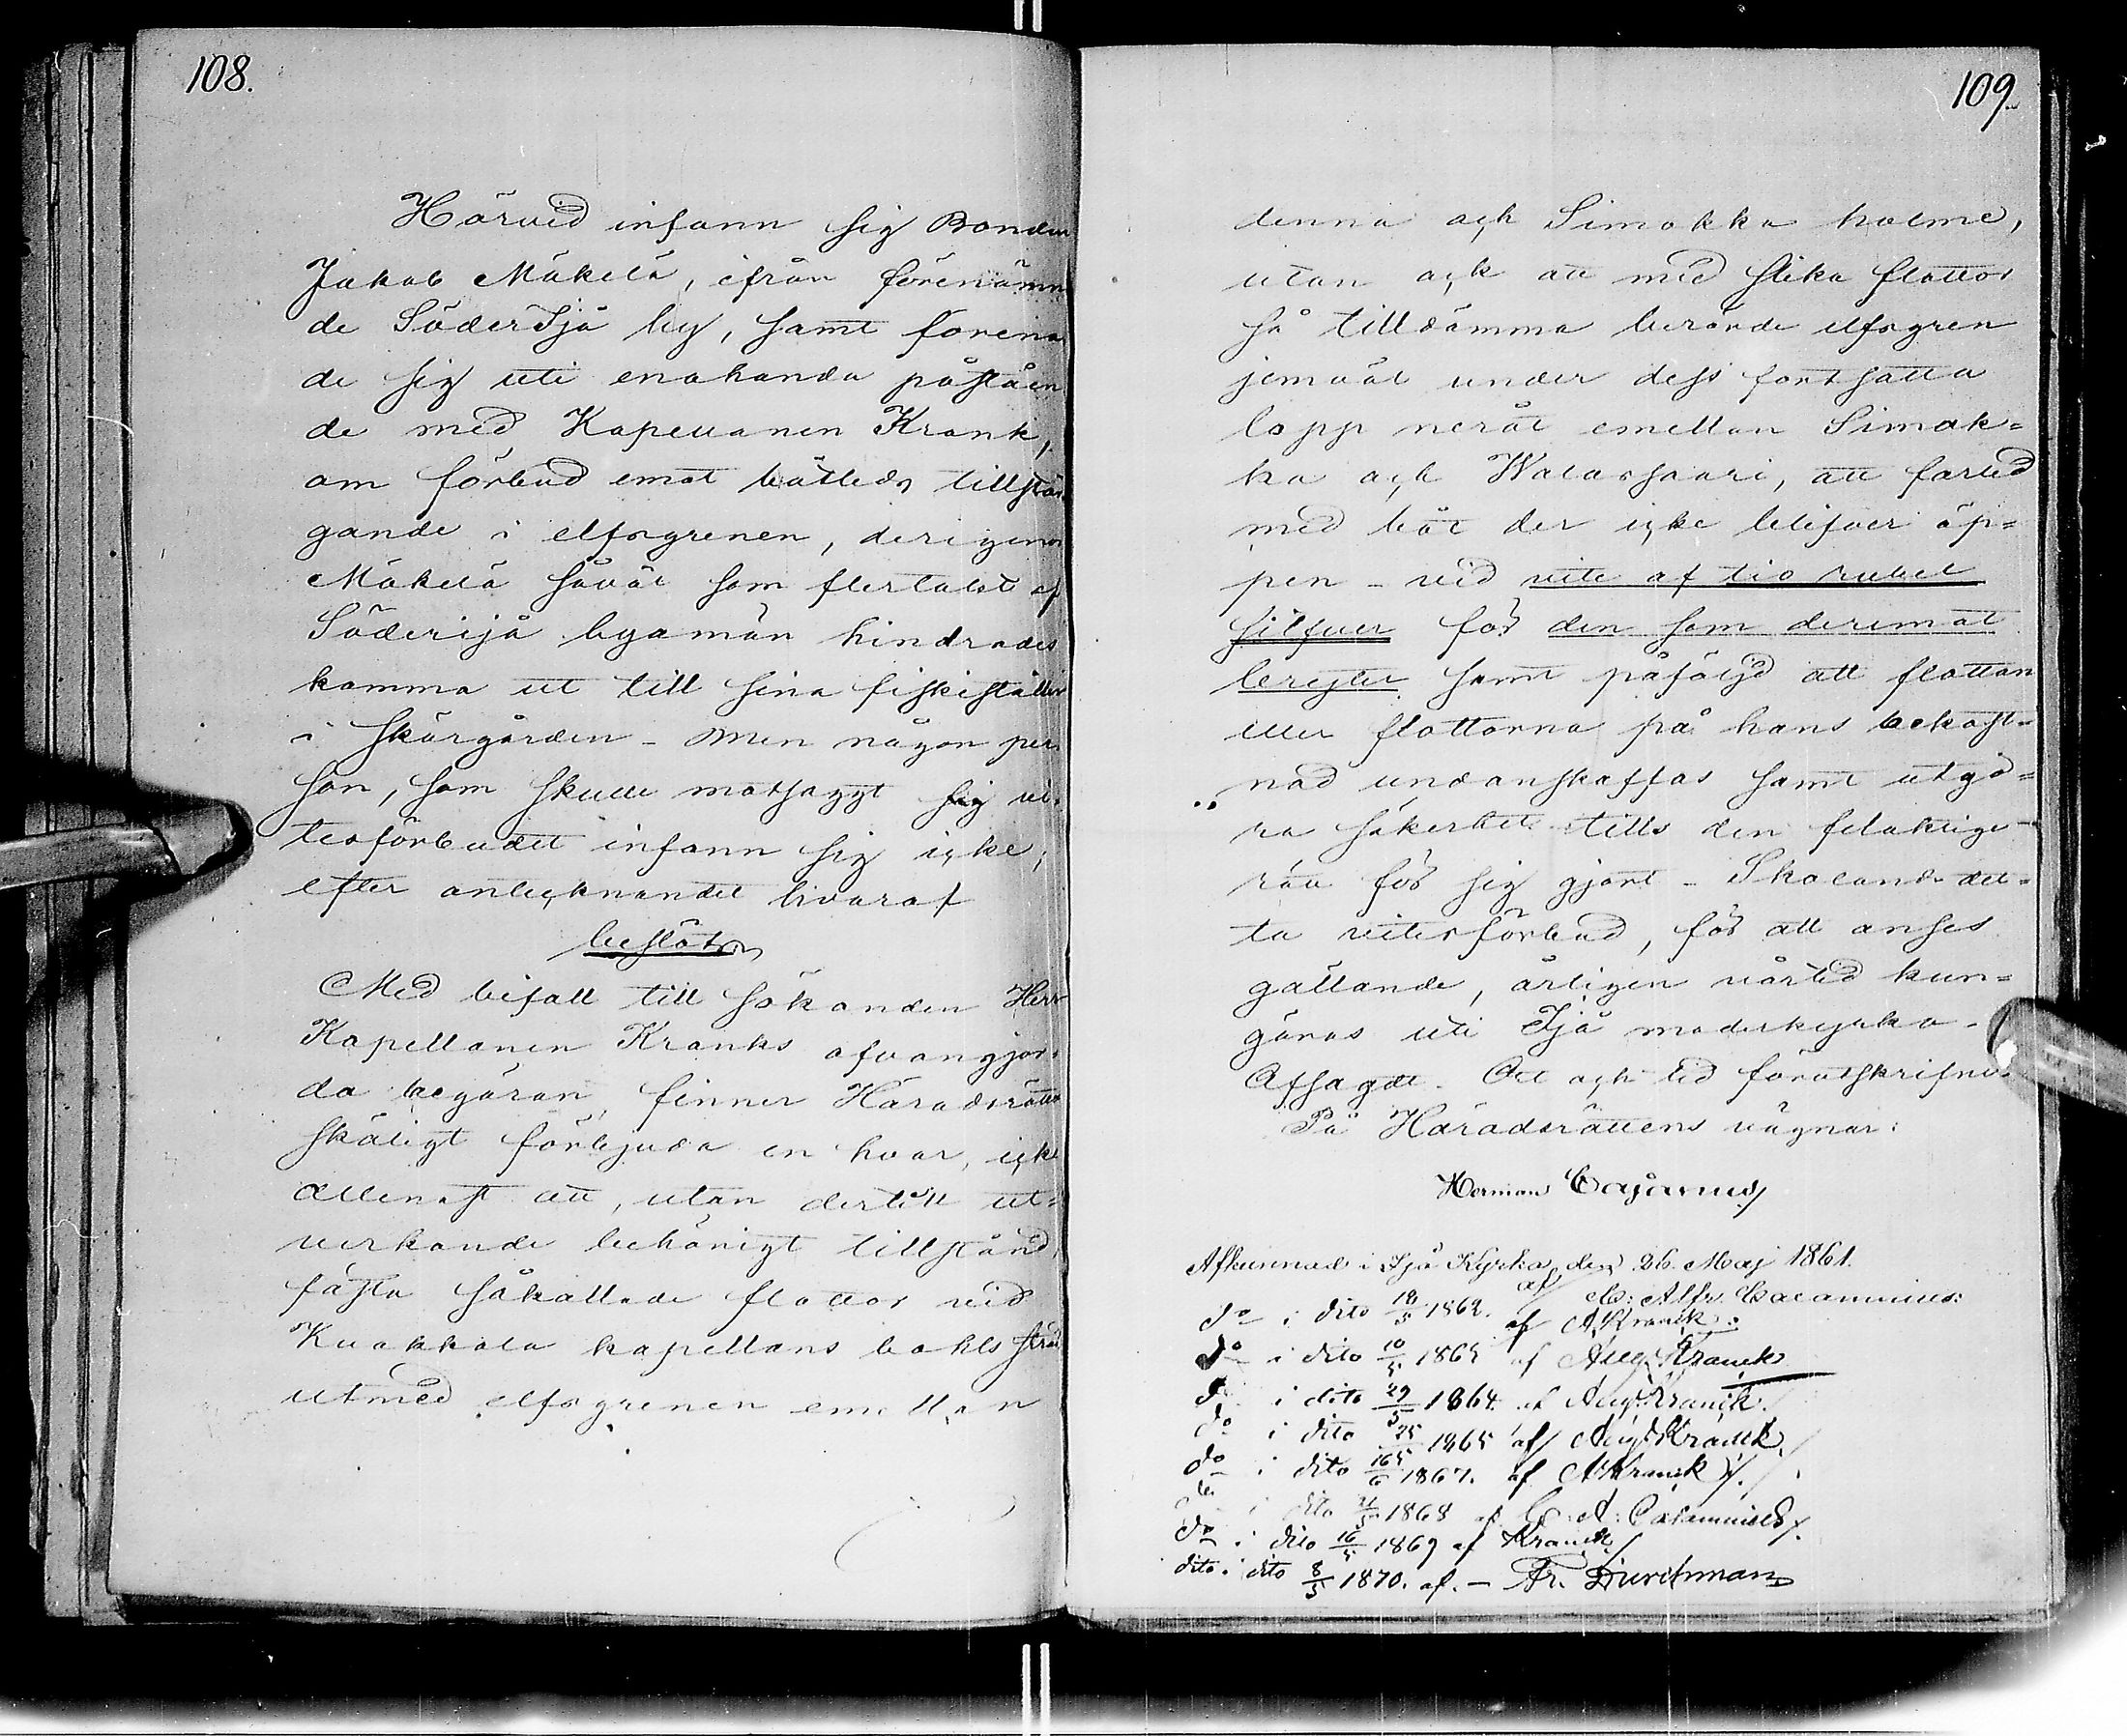 108.
Härvid infann sig Bonden
Jakob Mäkelä, ifrån förenämn
de SöderIjå by, samt förena
de sig uti enahanda påståen
de med Kapellanen Krank,
om förbud emot båtleds tillstän
gande i elfsgrenen, derigenom
Mäkelä såväl som flertalet af
Söderijå byamän hindrades
komma ut till sina fiskiställen
i skärgården – Men någon per
son, som skulle motsagt sig vi-
tesförbudet infann sig icke;
efter antecknandet hvaraf
beslöts
Med bifall till sökanden Herr
Kapellanen Kranks ofvangjor-
da begäran, finner Häradsrätten
skäligt förbjuda en hvar, icke
allenast att, utan dertill ut-
verkande behörigt tillstånd,
fästa såkallade flottor vid
Kuokkola kapellans bohls strän
utmed elfsgrenen emellan
109.
denna och Simokka holme,
utan ock att med slika flottor
så tilldämma berörde elfsgren
jemväl under dess fortsatta
lopp neråt emellan Simok=
ka och Watassaari, att farled
med båt der icke blifver öp=
pen – vid vite af tio rubel
silfver för den som deremot
bryter samt påföljd att flottan
eller flottorna på hans bekost=
nad undanskaffas samt utgö=
ra säkerhet tills den felaktige
rätt för sig gjort – Skolande det=
ta vitesförbud, för att anses
gällande, årligen vårtid kun=
göras uti Ijå moderkyrka –
Afsagdt. Ort och tid förutskrifne.
På Häradsrättens vägnar:
Herman Cajanus/
Afkunnad i Ijå Kyrka den 26 Maj 1861.
af C: Alfr. Calamnius:
do i dito 18/5 1862. af A. Kranck.
do i dito 10/5 1863 af Aug. Kranck
do i dito 29/5 1864. af Aug. Kranck.
do i dito 25/5 1865 af Aug. Kranck/
do i dito 16/6 1867. af A. Kranck/.
do i dito 21/5 1868 af C. A: Calamnius/.
do i dito 16/5 1869 af Kranck/
dito i dito 8/5 1870. af. – Fr. Durchman